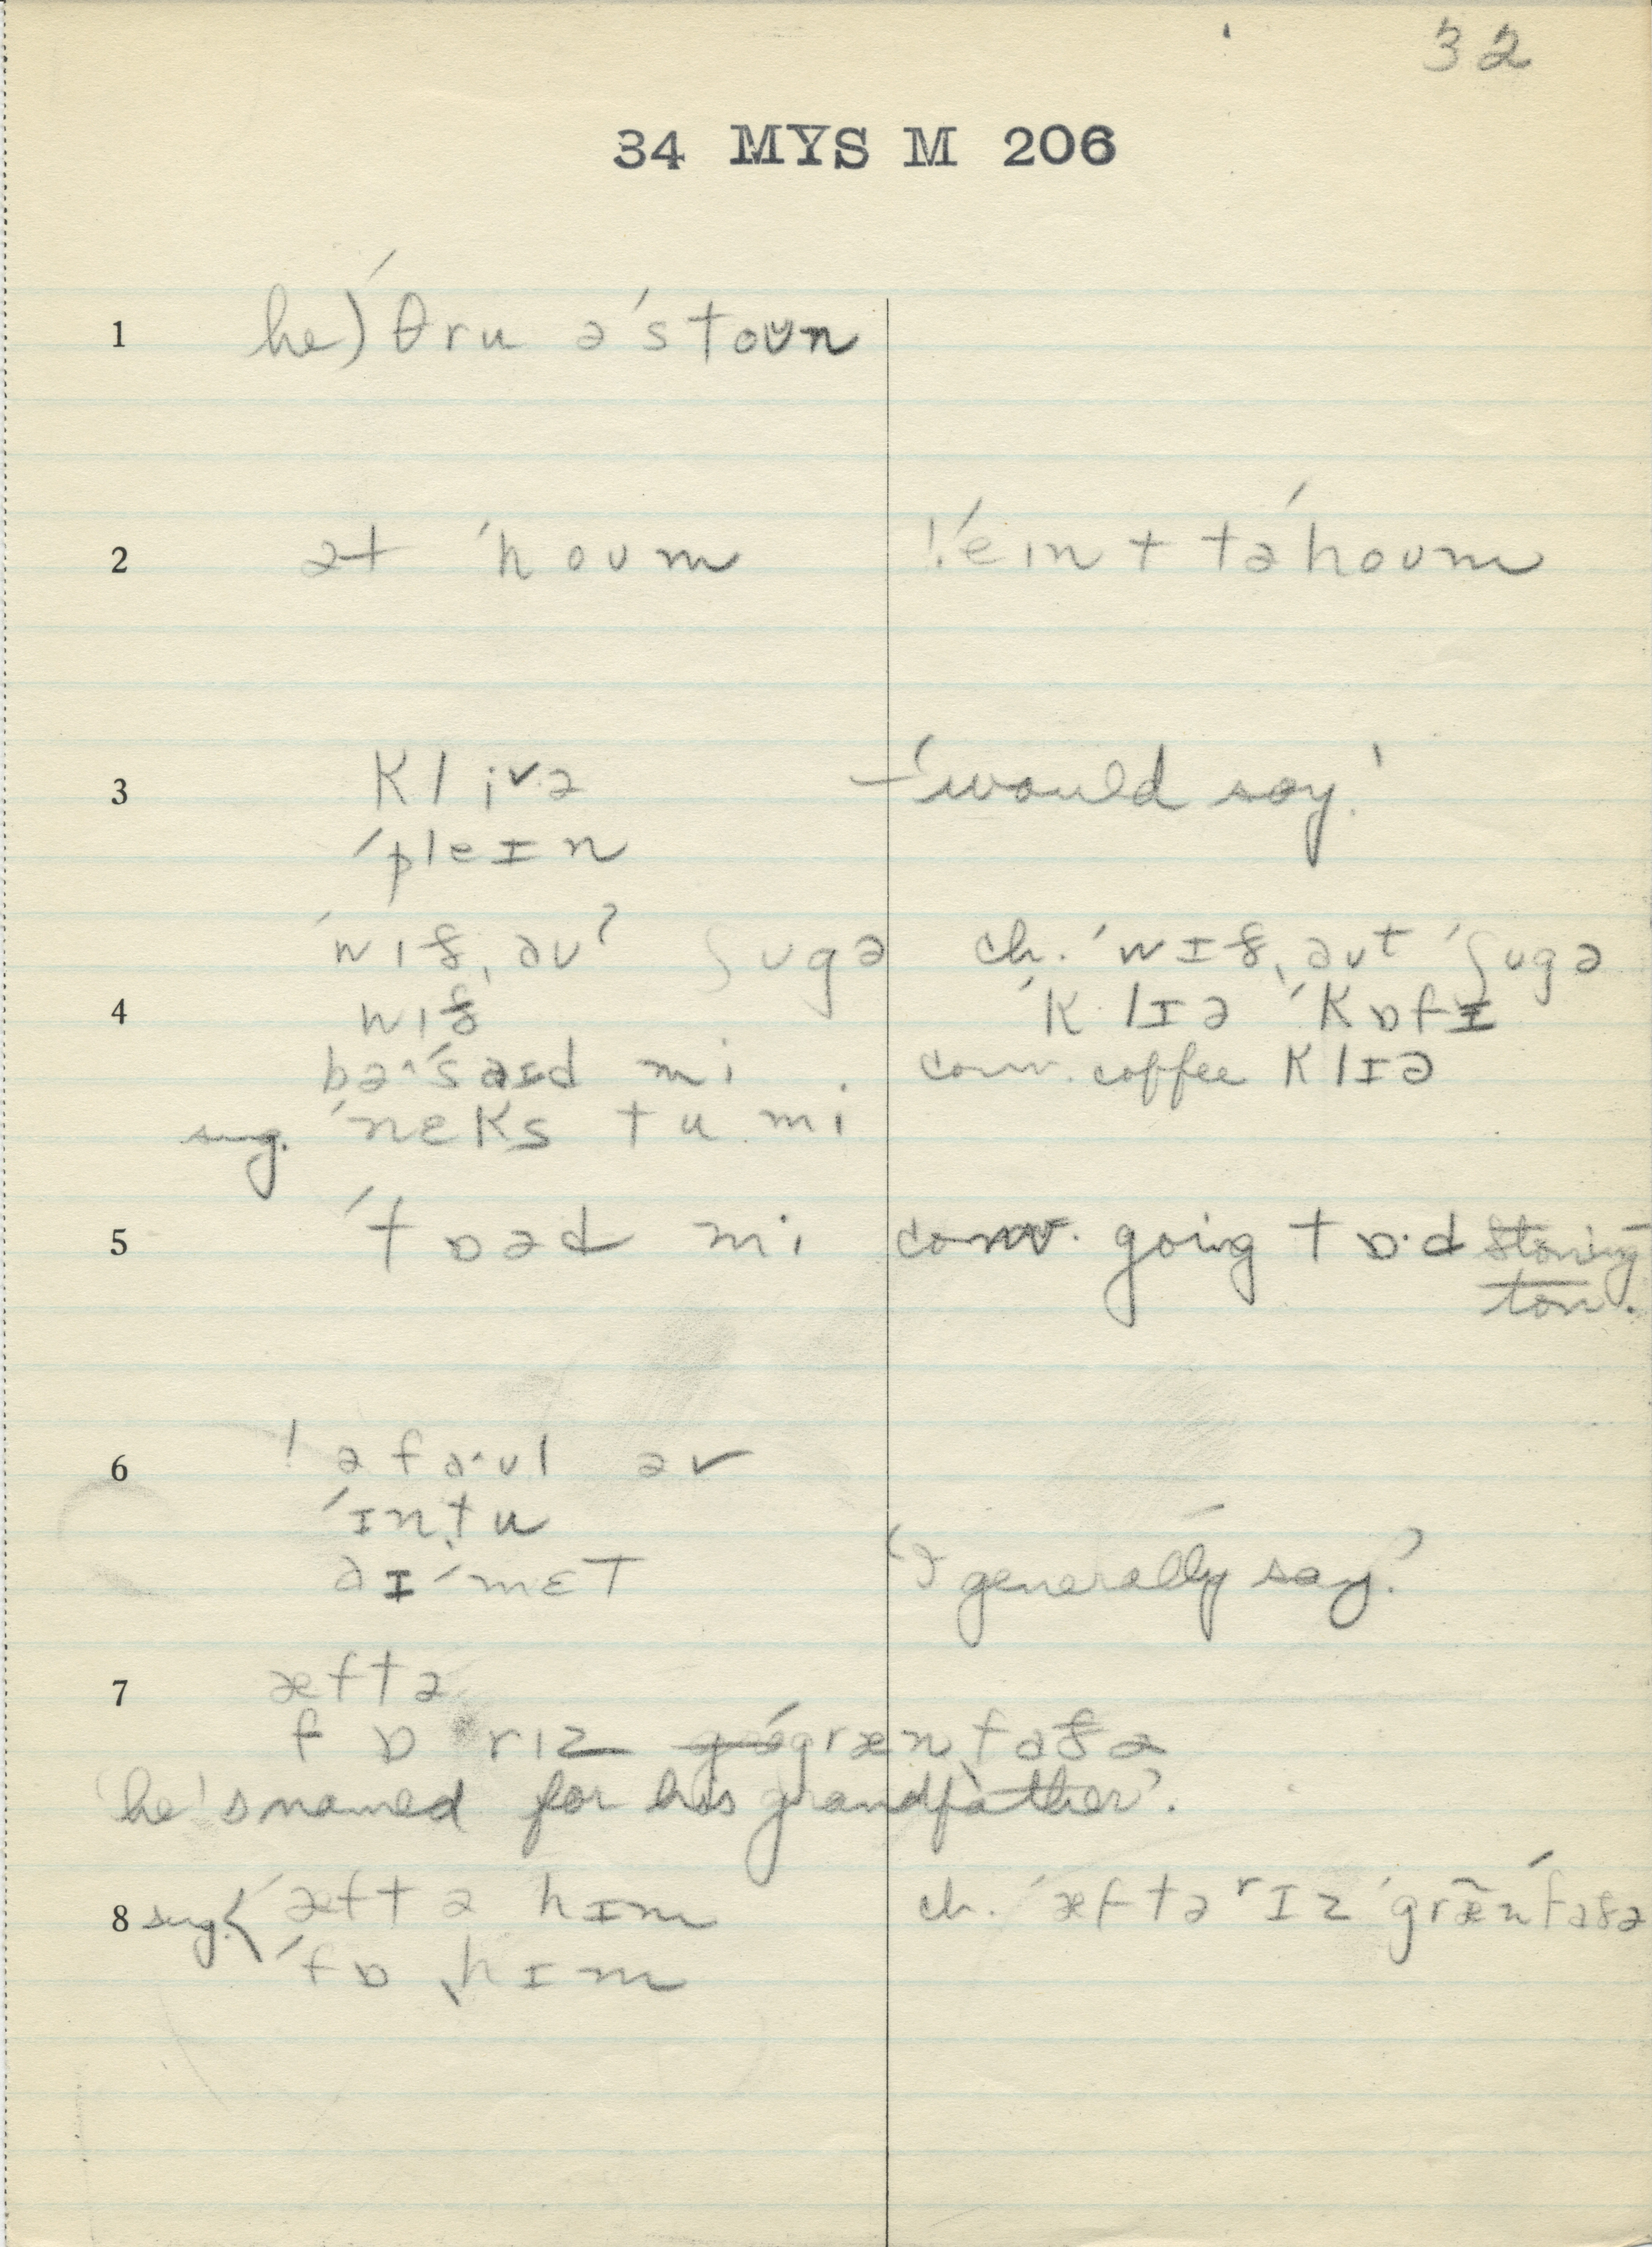 32
34 MYS M 206
1 he) ˈθru əˈstoʊn
2 ət ˈhoʊm !ˈeɪnt təˈhoʊm
3 klivə — 'would say'
ˈpleɪn
ˈwɪðˌəʊʔ ʃʊgə ch. ˈwɪðˌəʊt ˈʃʊgə
4 wɪð ˈklɪə ˈkɒfɪ
bəˈsaɪd mi conv. coffee klɪə
sug. ˈneks tu mi
5 ˈtɒəd mi conv. going tɒ·d Stoning-
ton.
6 ! ə faʊl əv
ˈɪnˌtu
aɪˈmɛt 'I generally say'
7 æftə
fɒ rɪz ˈgrænˌfaðə
'he's named for his grandfather'.
8 sug. { ˈæftə hɪm ch. ˈæftərɪz ˈgræ̃nˈfaðə
ˈfɒ ˌhɪm